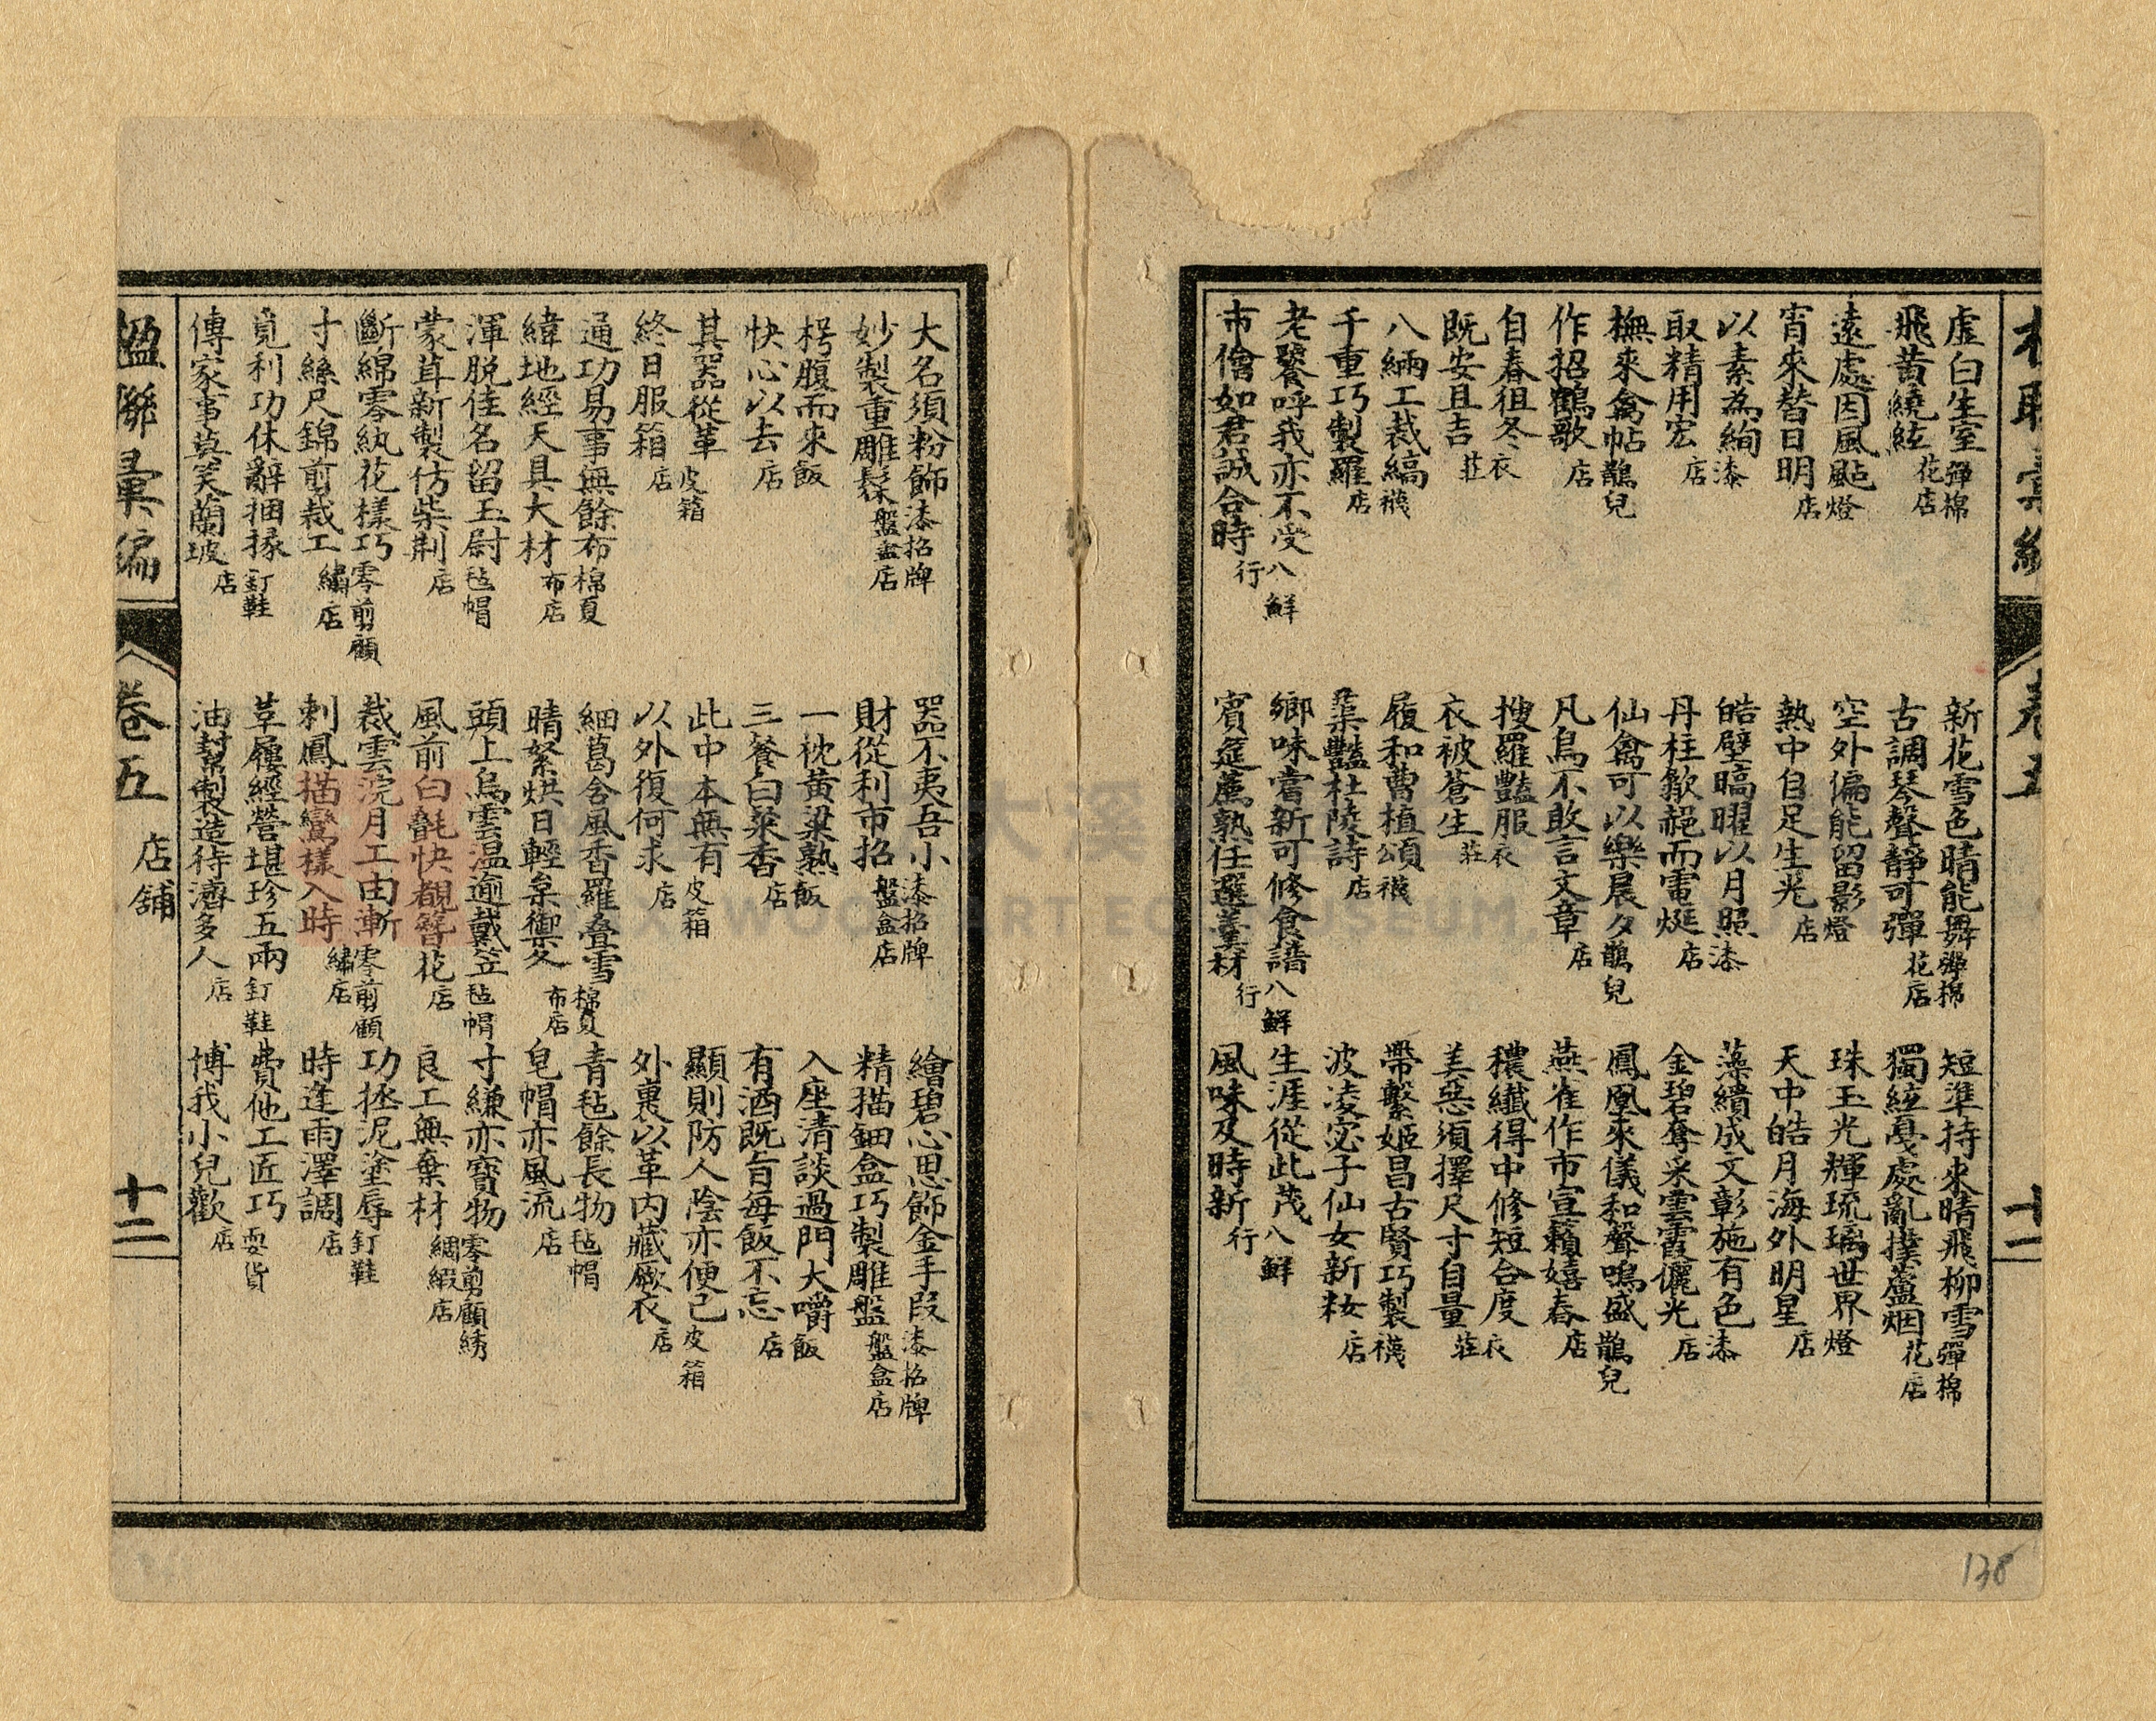 虛白生室彈棉
飛黃繞絃花店
遠處因風颭燈
宵來替日明店
以素為絢漆
取精用宏店
撫來禽帖鵲兒
作招鶴歌店
自春徂冬衣
既安且吉莊
八緉工裁縞襪
千重巧製羅店
老饕呼我亦不受八鮮
市儈如君誠合時行
新花雪色晴能舞彈棉
古調琴聲靜可彈花店
空外偏能留影燈
熱中自足生光店
皓壁暠曜以月照漆
丹柱歙赩而電烻店
仙禽可以樂晨夕鵲兒
凡鳥不敢言文章店
搜羅豔服衣
衣被蒼生莊
履和曹植頌襪
蕖豔杜陵詩店
鄉味嘗新可修食譜八鮮
賓筵薦熟任選羹材行
短準持來晴飛柳雪彈棉
獨絃戞處亂撲蘆烟花店
珠玉光輝琉璃世界燈
天中皓月海外明星店
藻繢成文彰施有色漆
金碧奪采雲霞儷光店
鳳凰來儀和聲鳴盛鵲兒
燕雀作市宣籟嬉春店
穠纖得中修短合度衣
美惡須擇尺寸自量莊
帶繫姬昌古賢巧製襪
波凌宓子仙女新妝店
生涯從此茂八鮮
風味及時新行
卷五
十二
大名須粉飾漆招牌
妙製重雕髹盤盒店
枵腹而來飯
快心以去店
其器從革皮箱
終日服箱店
通功易事無餘布棉夏
緯地經天具大材布店
渾脫佳名留玉尉毡帽
蒙茸新製仿柴荊店
斷綿零紈花樣巧零剪顧
寸絲尺錦剪裁工繡店
覓利功休辭捆掾釘鞋
傳家事莫笑蘭坡店
器不夷吾小漆招牌
財從利市招盤盒店
一枕黃粱熟飯
三餐白粲香店
此中本無有皮箱
以外復何求店
細葛含風香羅疊雪棉夏
晴絮烘日輕枲禦冬布店
頭上烏雲温逾戴笠毡帽
風前白氎快覩簪花店
裁雲浣月工由漸零剪顧
刺鳳描鸞樣入時繡店
草履經營堪珍五兩釘鞋
油幫製造待濟多人店
繪碧心思飾金手段漆招牌
精描鈿盒巧製雕盤盤盒店
入座清談過門大嚼飯
有酒既旨每飯不忘店
顯則防人陰亦便己皮箱
外裹以革內藏厥衣店
青毡餘長物毡帽
皂帽亦風流店
寸縑亦寶物零剪顧綉
良工無棄材綢緞店
功拯泥塗辱釘鞋
時逢雨澤調店
費他工匠巧耍貨
博我小兒歡店
楹聯彙編
卷五
店舖
十二
138